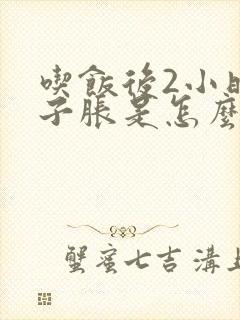 喫飯後2小時
子脹是怎麼
蟹蜜七吉溝上